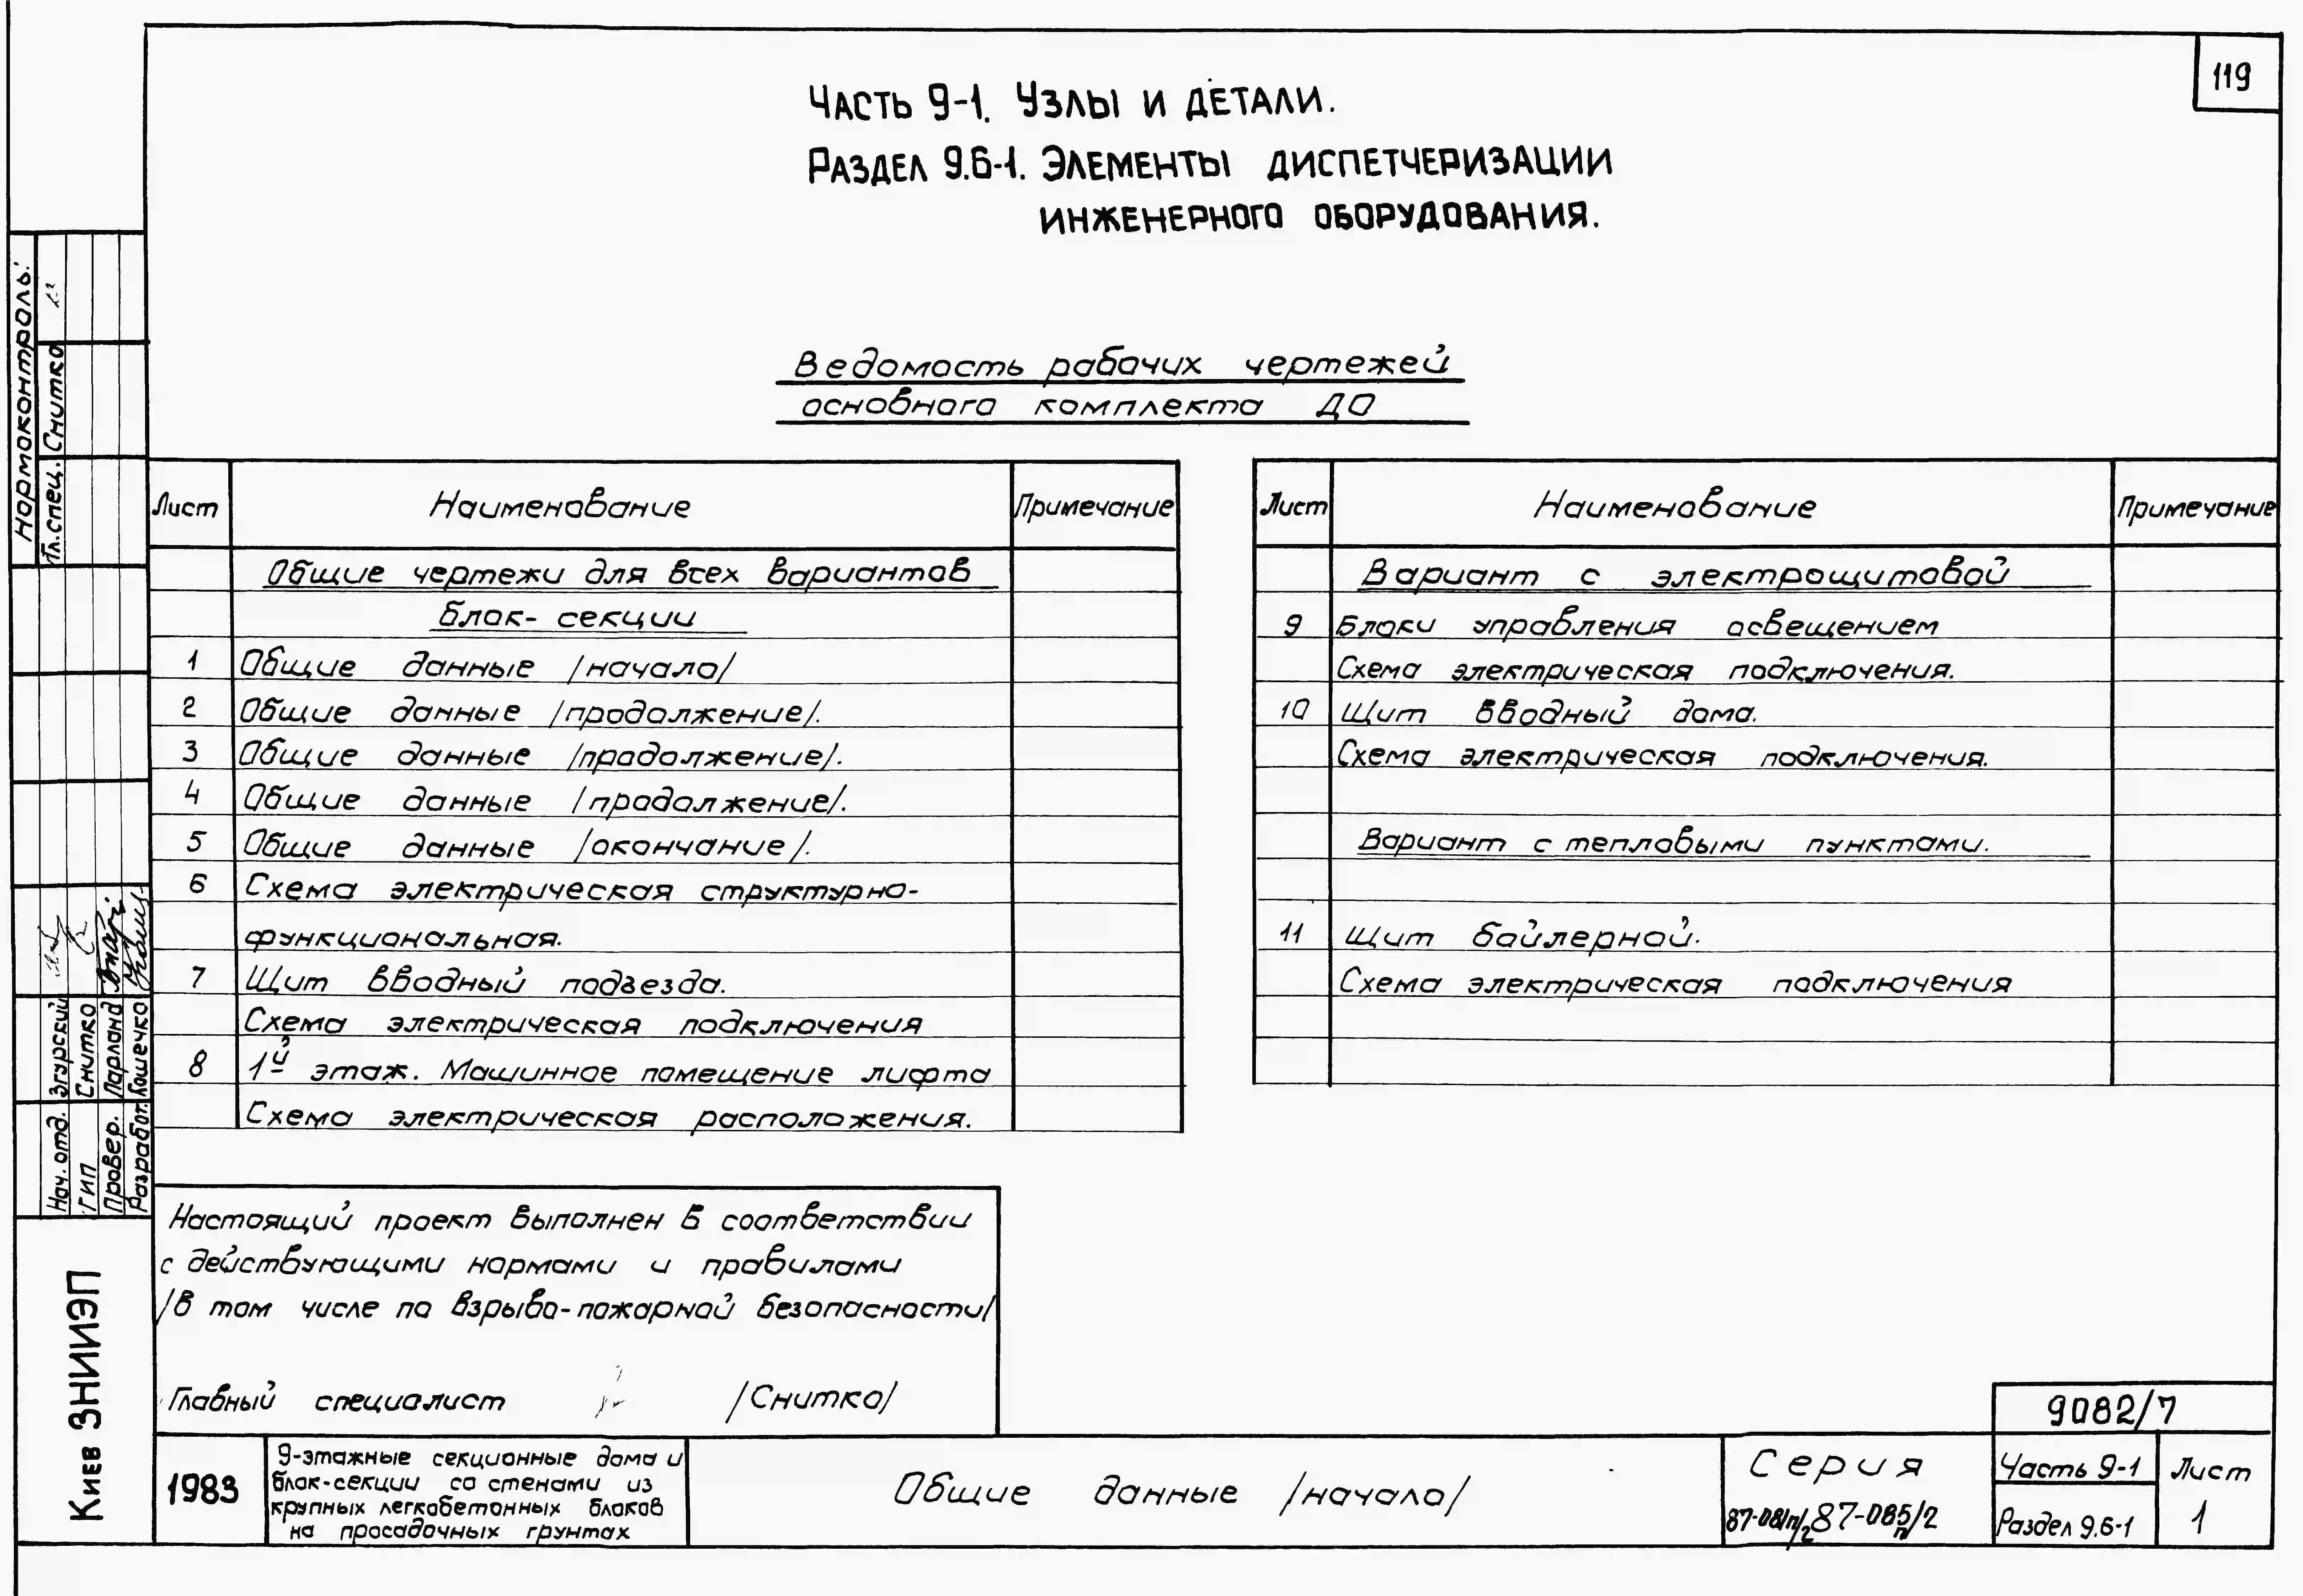 119
Часть 9-1. Узлы и детали.
Раздел 9.6-1. Элементы диспетчеризации
инженерного оборудования.
Ведомость рабочих чертежей
основного комплекта ДО
Лист Наименование Примечание
Общие чертежи для всех вариантов
блок-секции
1 Общие данные /начало/
2 Общие данные /продолжение/.
3 Общие данные /продолжение/.
4 Общие данные /продолжение/.
5 Общие данные /окончание/.
6 Схема электрическая структурно-
функциональная.
7 Щит вводный подъезда.
Схема электрическая подключения
8 1й этаж. Машинное помещение лифта
Схема электрическая расположения.
Лист Наименование Примечание
Вариант с электрощитовой
9 Блоки управления освещением
Схема электрическая подключения.
10 Щит вводный дома.
Схема электрическая подключения.
Вариант с тепловыми пунктами.
11 Щит бойлерной.
Схема электрическая подключения
Настоящий проект выполнен в соответствии
с действующими нормами и правилами
/в том числе по взрыво-пожарной безопасности/
Главный специалист /Снитко/
Нормоконтроль:
Гл. спец. Снитко
Нач. отд. Згурский
ГИП Снитко
Провер. Парланд
Разработ. Кошечко
Киев ЗНИИЭП
1983
9-этажные секционные дома и
блок-секции со стенами из
крупных легкобетонных блоков
на просадочных грунтах
Общие данные /начало/
Серия
87-081п/2 87-085п/2
9082/7
Часть 9-1
Раздел 9.6-1
Лист
1